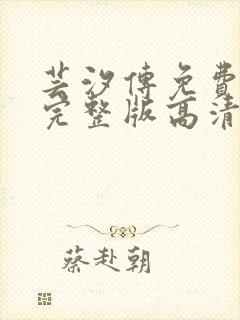 芸汐傳免費
完整版高清
蔡赴朝